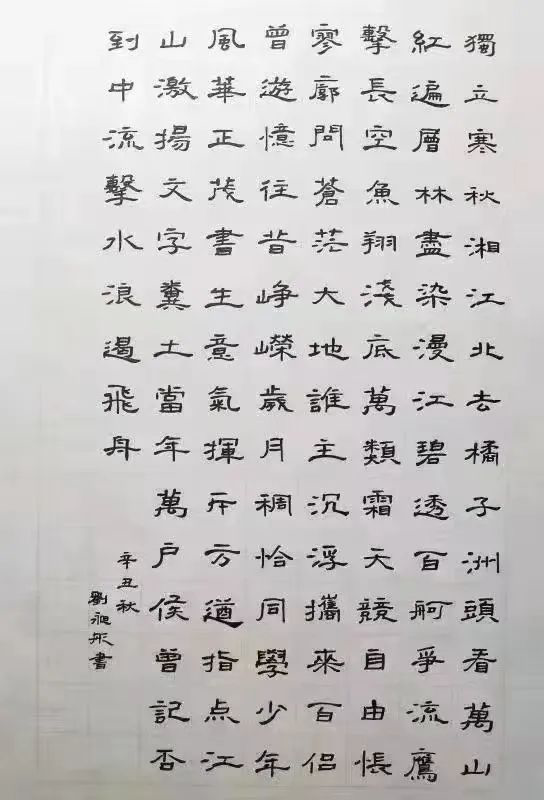 獨立寒秋湘江北去橘子洲頭看萬山
紅遍層林盡染漫江碧透百舸爭流鷹
擊長空魚翔淺底萬類霜天競自由悵
寥廓問蒼茫大地誰主沉浮攜來百侶
曾遊憶往昔崢嶸歲月稠恰同學少年
風華正茂書生意氣揮斥方遒指点江
山激揚文字糞土當年萬户侯曾記否
到中流擊水浪遏飛舟
辛丑秋
劉彤書